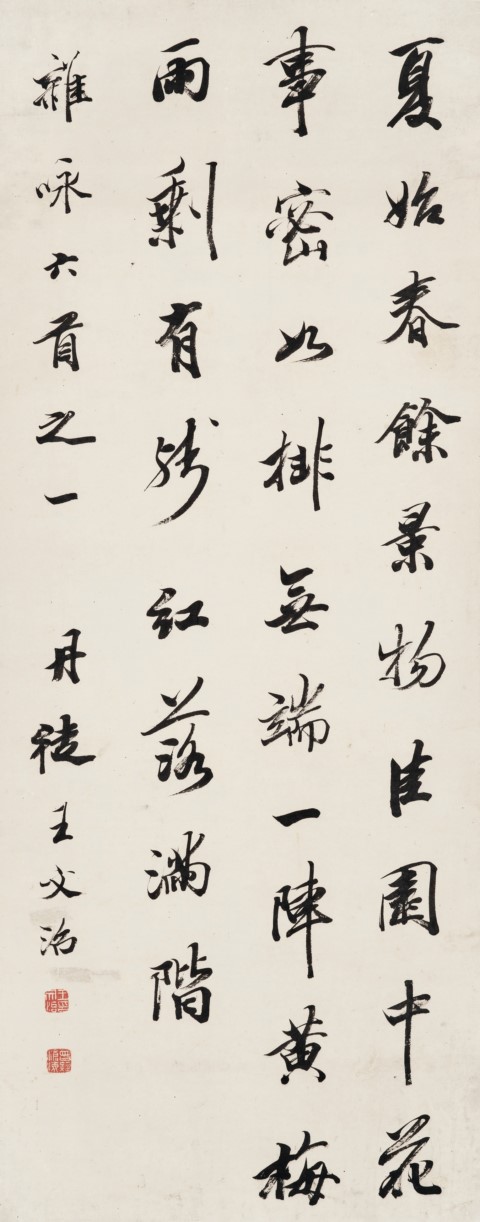 夏始春餘景物佳園中花
事密如排無端一陣黃梅
雨剩有殘紅落滿階
雜咏六首之一 丹徒王文治